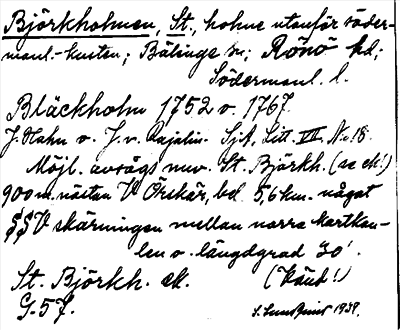 Björkholmen, St., holme utanför söder-
manl.-kusten; Bälinge sn; Rönö hd;
Södermanl. l.
Bläckholm 1752 o. 1767.
J. Hahn o. J. v. Rajalin. SjA, Litt. VII, N:o 18.
Möjl. avsågs nuv. St. Björkh. (se ek!)
900 m. nästan V Örskär, bel. 5,6 km. något
SSV skärningen mellan norra kartkan-
ten o. längdgrad 30'.
St. Björkh. ek. (Känt!)
G-57. 1939.